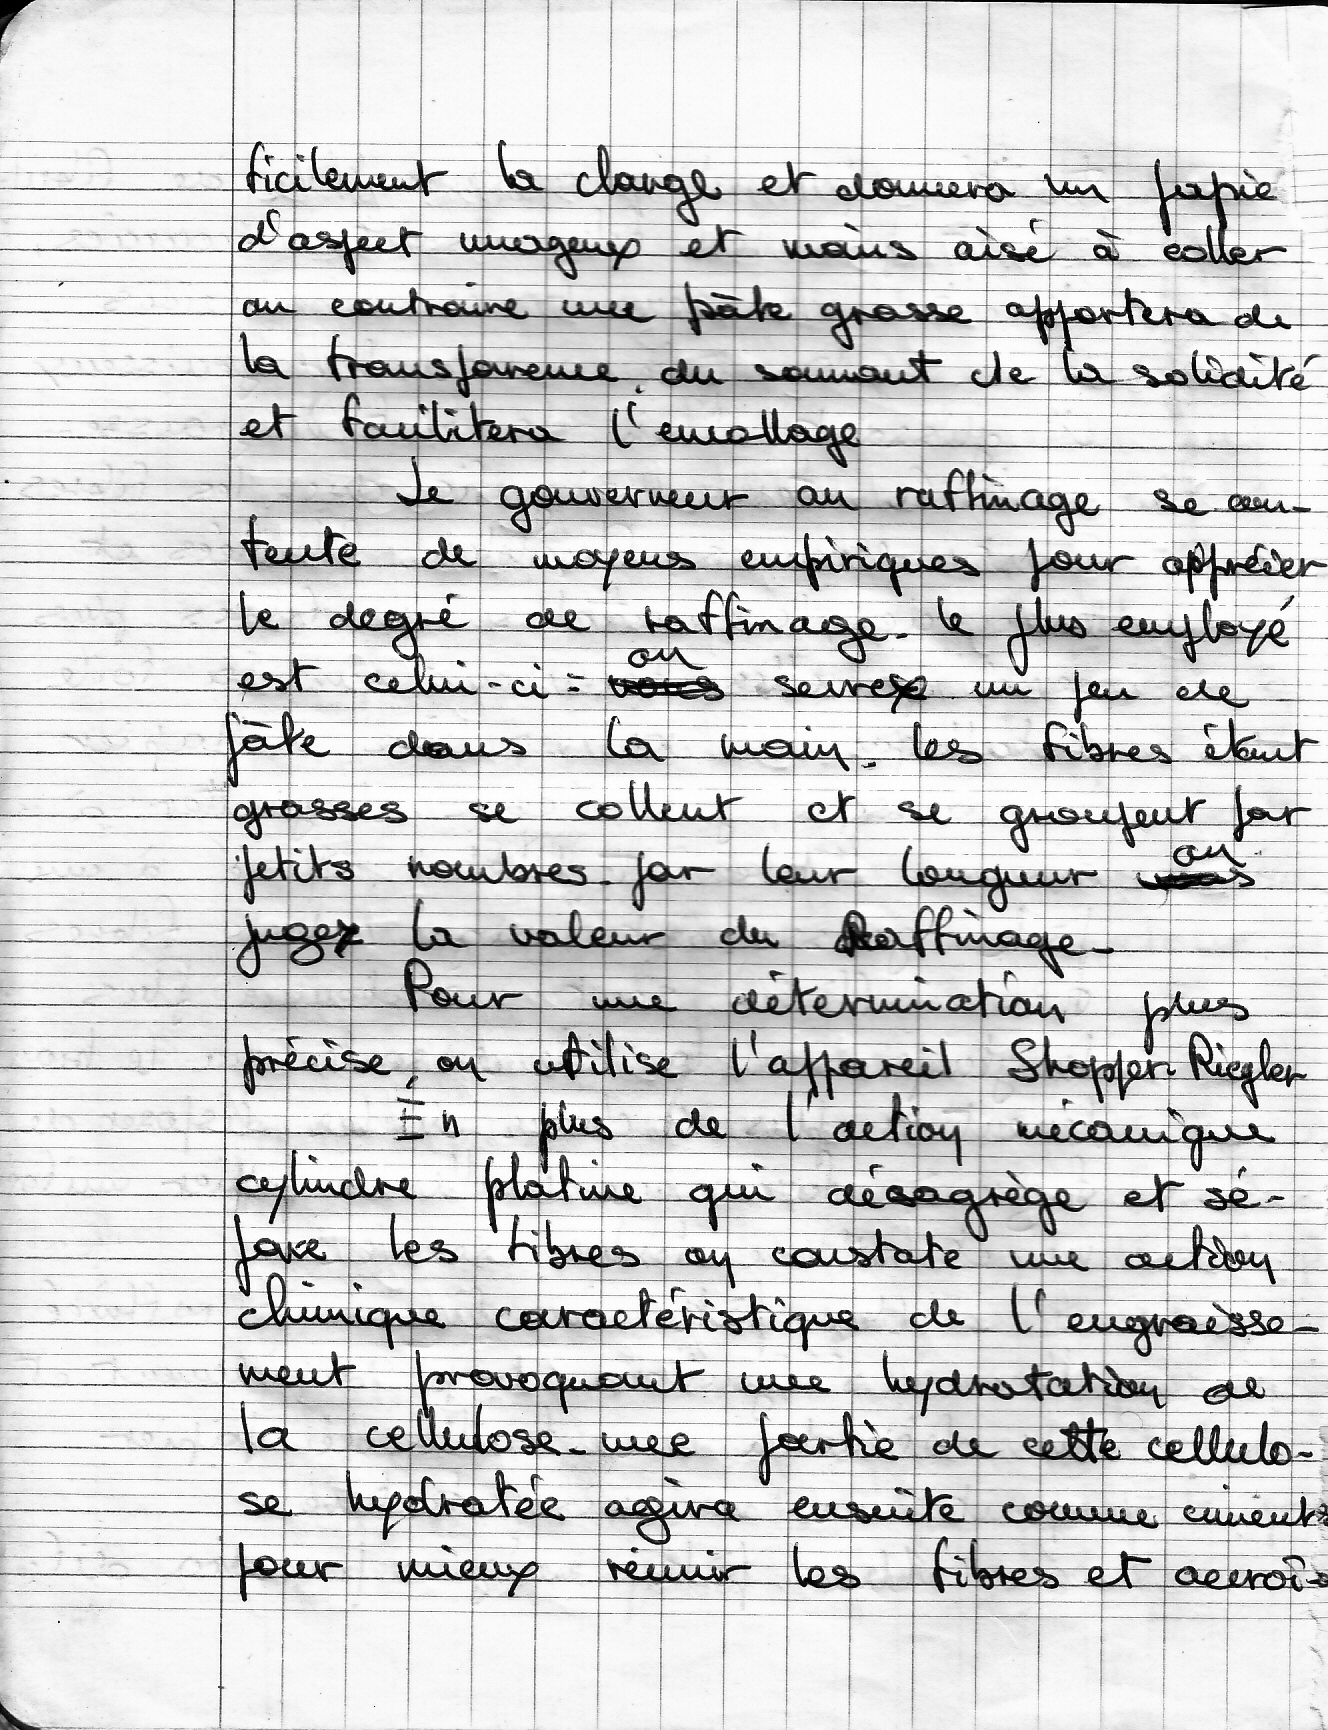 ficilement la charge et donnera un papie
d'aspect nuageux et moins aisé à coller
au contraire une pâte grasse apportera de
la transparence, du sonnant de la solidité
et facilitera l'encollage
Le gouverneur au raffinage se con-
tente de moyens empiriques pour apprécier
le degré de raffinage. le plus employé
est celui-ci : on serre un peu de
pâte dans la main. les fibres étant
grasses se collent et se groupent par
petits nombres. par leur longueur on
juge la valeur du Raffinage.
Pour une détermination plus
précise, on utilise l'appareil Shopper Riegler
En plus de l'action mécanique
cylindre platine qui désagrège et sé-
pare les fibres on constate une action
chimique caractéristique de l'engraisse-
ment provoquant une hydratation de
la cellulose. une partie de cette cellulo-
se hydratée agira ensuite comme ciment
pour mieux réunir les fibres et accroî-